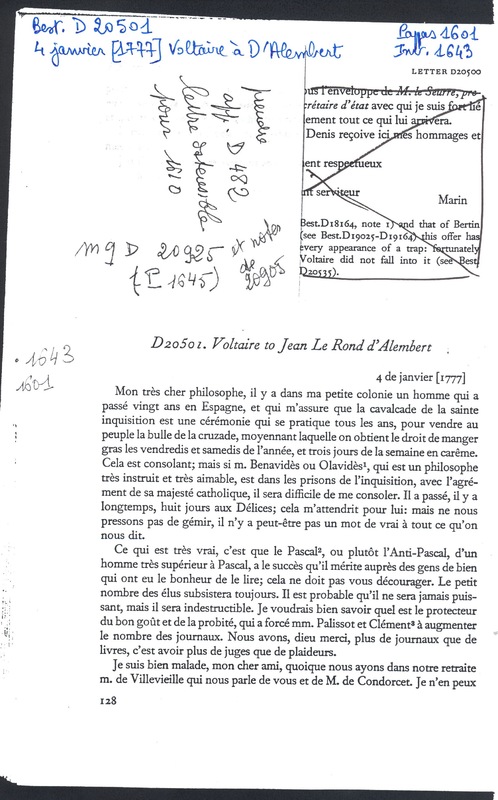 Best. D 20501
4 janvier [1777] Voltaire à D'Alembert
Pappas 1601
Inv. 1643
LETTER D20500
ous l'enveloppe de M. le Seurre, pre-
crétaire d'état avec qui je suis fort lié
ement tout ce qui lui arrivera.
Denis reçoive ici mes hommages et
ent respectueux
nt serviteur
Marin
Best.D18164, note 1) and that of Bertin
(see Best.D19025-D19164) this offer has
every appearance of a trap: fortunately
Voltaire did not fall into it (see Best.
D20535).
prendre
app. D 482
lettre ostensible
pour 1610
mg D 20925 et notes
de
20905
(P 1645)
• 1643
1601
D20501. Voltaire to Jean Le Rond d'Alembert
4 de janvier [1777]
Mon très cher philosophe, il y a dans ma petite colonie un homme qui a
passé vingt ans en Espagne, et qui m'assure que la cavalcade de la sainte
inquisition est une cérémonie qui se pratique tous les ans, pour vendre au
peuple la bulle de la cruzade, moyennant laquelle on obtient le droit de manger
gras les vendredis et samedis de l'année, et trois jours de la semaine en carême.
Cela est consolant; mais si m. Benavidès ou Olavidès¹, qui est un philosophe
très instruit et très aimable, est dans les prisons de l'inquisition, avec l'agré-
ment de sa majesté catholique, il sera difficile de me consoler. Il a passé, il y a
longtemps, huit jours aux Délices; cela m'attendrit pour lui: mais ne nous
pressons pas de gémir, il n'y a peut-être pas un mot de vrai à tout ce qu'on
nous dit.
Ce qui est très vrai, c'est que le Pascal², ou plutôt l'Anti-Pascal, d'un
homme très supérieur à Pascal, a le succès qu'il mérite auprès des gens de bien
qui ont eu le bonheur de le lire; cela ne doit pas vous décourager. Le petit
nombre des élus subsistera toujours. Il est probable qu'il ne sera jamais puis-
sant, mais il sera indestructible. Je voudrais bien savoir quel est le protecteur
du bon goût et de la probité, qui a forcé mm. Palissot et Clément³ à augmenter
le nombre des journaux. Nous avons, dieu merci, plus de journaux que de
livres, c'est avoir plus de juges que de plaideurs.
Je suis bien malade, mon cher ami, quoique nous ayons dans notre retraite
m. de Villevieille qui nous parle de vous et de M. de Condorcet. Je n'en peux
128